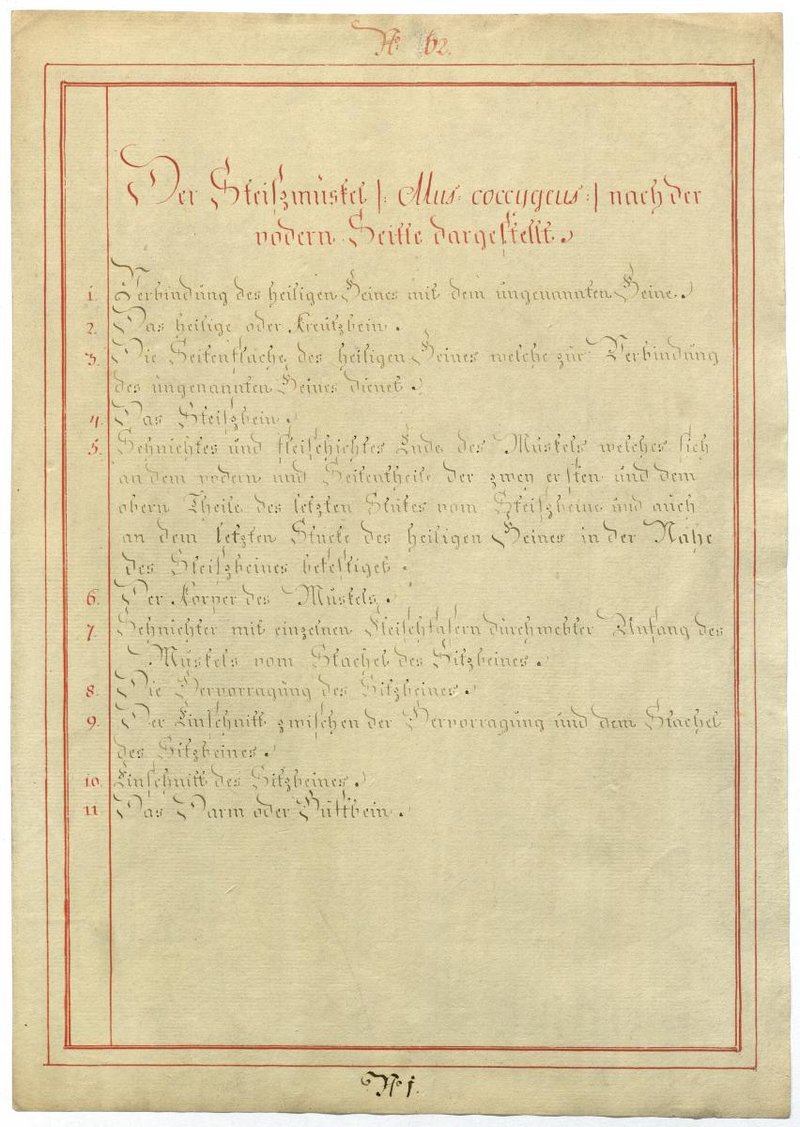 No 62.
Der Steiszmuskel /: Mus: coccygeus :/ nach der
vodern Seitte dargestellt.
1. Verbindung des heiligen Beines mit dem ungenannten Beine.
2. Das heilige oder Kreutzbein.
3. Die Seitenflache des heiligen Beines welche zur Verbindung
des ungenannten Beines dienet.
4. Das Steiszbein.
5. Sehnichtes und fleischichtes Ende des Muskels welches sich
an dem vodern und Seitentheile der zwey ersten und dem
obern Theile des letzten Stükes vom Steiszbeine und auch
an dem letzten Stücke des heiligen Beines in der Nähe
des Steiszbeines befestiget.
6. Der Körper des Muskels.
7. Sehnichter mit einzelnen Fleischfasern durchwebter Anfang des
Muskels vom Stachel des Sitzbeines.
8. Die Hervorragung des Sitzbeines.
9. Der Einschnitt zwischen der Hervorragung und dem Stachel
des Sitzbeines.
10. Einschnitt des Sitzbeines.
11 Das Darm oder Hüftbein.
No 1.